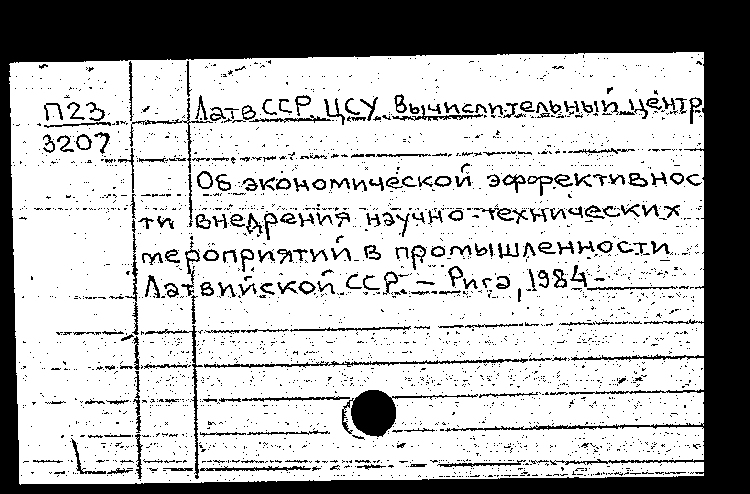 П23
3207
Латв ССР. ЦСУ. Вычислительный центр
Об экономической эффективнос
ти внедрения научно-технических
мероприятий в промышленности
Латвийской ССР. – Рига, 1984 –